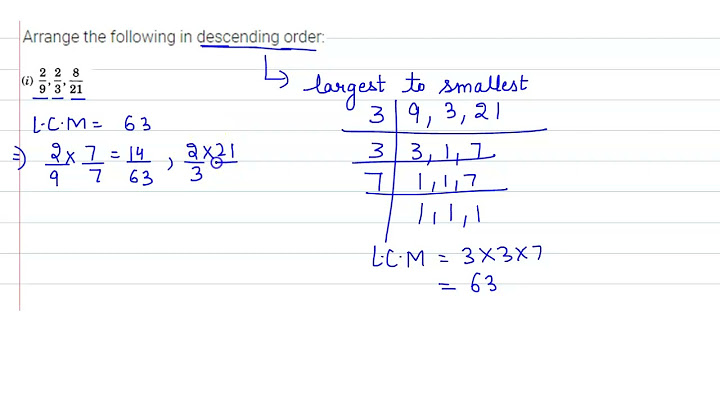 Arrange the following in descending order:
↳ largest to smallest
(i) 2/9, 2/3, 8/21
L.C.M = 63
⇒ 2/9 × 7/7 = 14/63, 2/3 × 21
3 | 9, 3, 21
3 | 3, 1, 7
7 | 1, 1, 7
| 1, 1, 1
L.C.M = 3×3×7
= 63